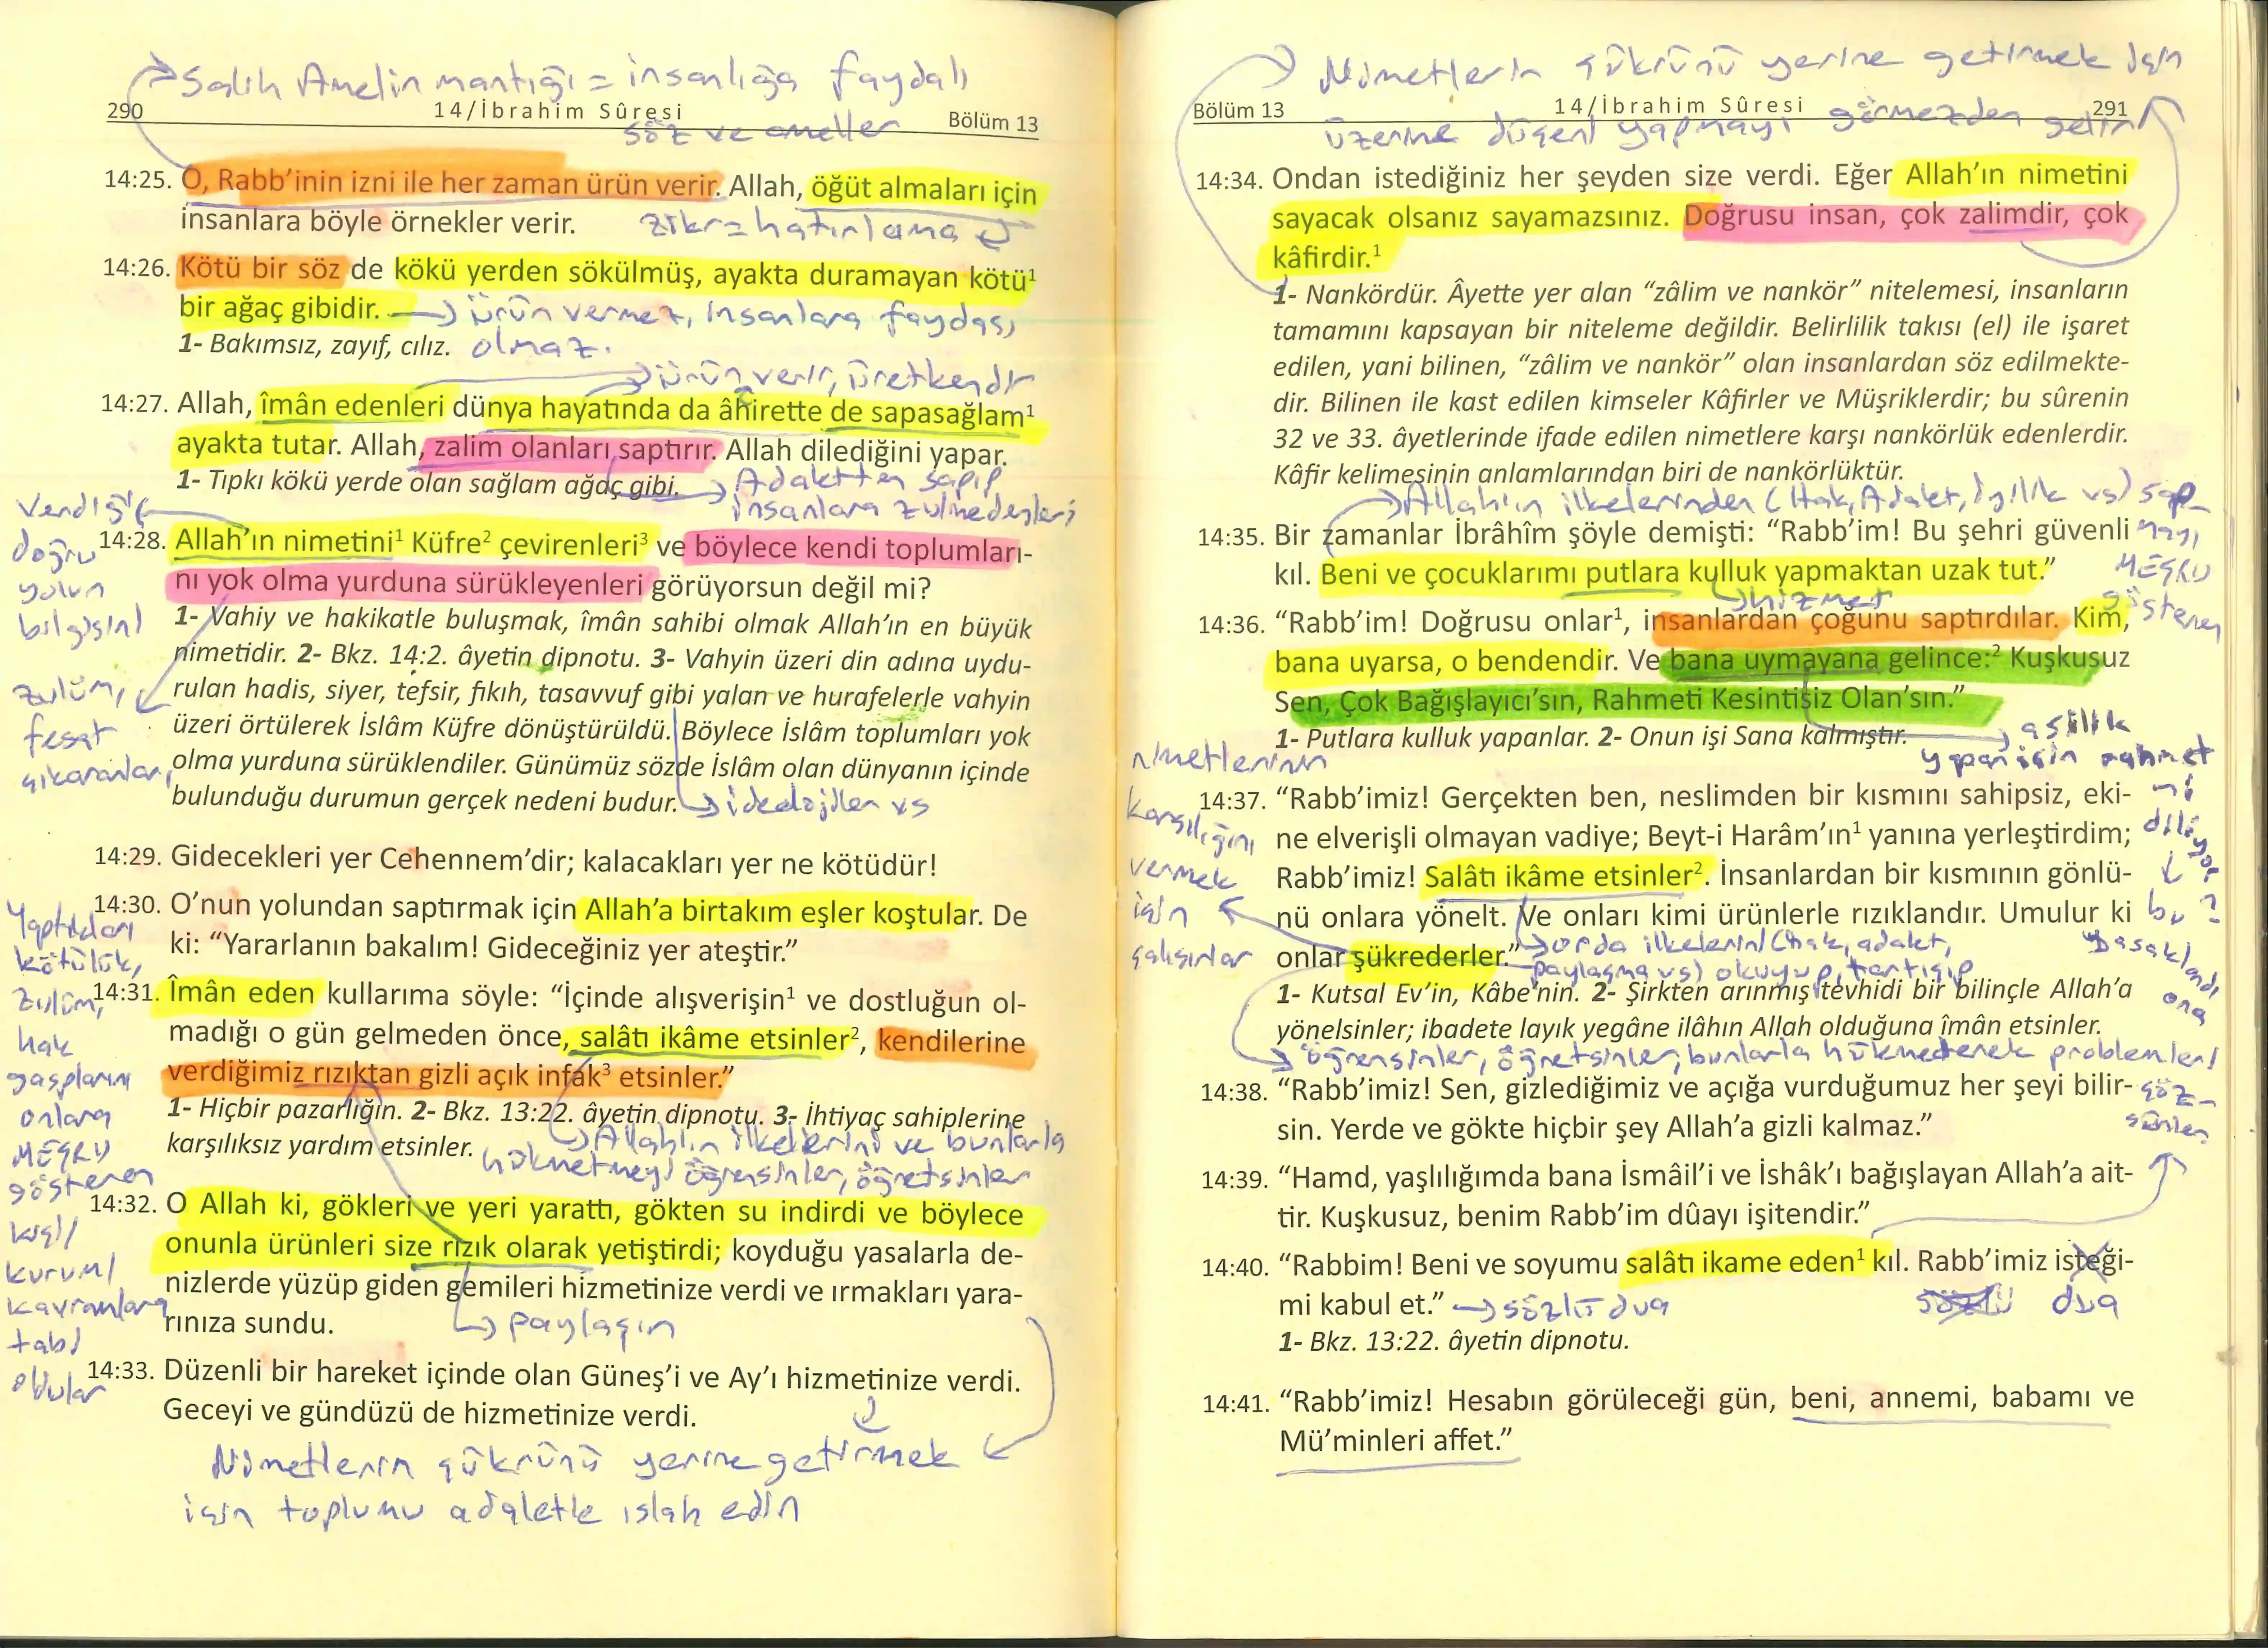 Salih Amelin mantığı = insanlığa faydalı
290 14/İbrahim Sûresi Bölüm 13
söz ve ameller
14:25. O, Rabb'inin izni ile her zaman ürün verir. Allah, öğüt almaları için
insanlara böyle örnekler verir. zikr=hatırlama
14:26. Kötü bir söz de kökü yerden sökülmüş, ayakta duramayan kötü¹
bir ağaç gibidir. → ürün vermez, insanlara faydası
1- Bakımsız, zayıf, cılız. olmaz.
ürün verir, üretkendir
14:27. Allah, îmân edenleri dünya hayatında da âhirette de sapasağlam¹
ayakta tutar. Allah, zalim olanları saptırır. Allah dilediğini yapar.
1- Tıpkı kökü yerde olan sağlam ağaç gibi. → Adaletten sapıp
insanlara zulmedenleri
Verdiği
doğru
yolun
bilgisini
14:28. Allah'ın nimetini¹ Küfre² çevirenleri³ ve böylece kendi toplumları-
nı yok olma yurduna sürükleyenleri görüyorsun değil mi?
1- Vahiy ve hakikatle buluşmak, îmân sahibi olmak Allah'ın en büyük
nimetidir. 2- Bkz. 14:2. âyetin dipnotu. 3- Vahyin üzeri din adına uydu-
rulan hadis, siyer, tefsir, fıkıh, tasavvuf gibi yalan ve hurafelerle vahyin
üzeri örtülerek İslâm Küfre dönüştürüldü. Böylece İslâm toplumları yok
olma yurduna sürüklendiler. Günümüz sözde İslâm olan dünyanın içinde
bulunduğu durumun gerçek nedeni budur. → ideolojiler vs
zulüm,
fesat
çıkaranlar
14:29. Gidecekleri yer Cehennem'dir; kalacakları yer ne kötüdür!
14:30. O'nun yolundan saptırmak için Allah'a birtakım eşler koştular. De
ki: "Yararlanın bakalım! Gideceğiniz yer ateştir."
14:31. Îmân eden kullarıma söyle: "İçinde alışverişin¹ ve dostluğun ol-
madığı o gün gelmeden önce, salâtı ikâme etsinler², kendilerine
verdiğimiz rızıktan gizli açık infâk³ etsinler."
1- Hiçbir pazarlığın. 2- Bkz. 13:22. âyetin dipnotu. 3- İhtiyaç sahiplerine
karşılıksız yardım etsinler. → Allah'ın ilkelerini ve bunlarla
hükmetmeyi öğrensinler, öğretsinler
Yaptıkları
kötülük,
zulüm,
hak
gasplarını
onlara
MEŞRU
gösteren
kişi/
kurum/
kavramlara
tabi
oldular
14:32. O Allah ki, gökleri ve yeri yarattı, gökten su indirdi ve böylece
onunla ürünleri size rızık olarak yetiştirdi; koyduğu yasalarla de-
nizlerde yüzüp giden gemileri hizmetinize verdi ve ırmakları yara-
rınıza sundu. → paylaşın
14:33. Düzenli bir hareket içinde olan Güneş'i ve Ay'ı hizmetinize verdi.
Geceyi ve gündüzü de hizmetinize verdi.
Nimetlerin şükrünü yerine getirmek
için toplumu adaletle ıslah edin
Nimetlerin şükrünü yerine getirmek için
Bölüm 13 14/İbrahim Sûresi 291
üzerine düşeni yapmayı görmezden gelir
14:34. Ondan istediğiniz her şeyden size verdi. Eğer Allah'ın nimetini
sayacak olsanız sayamazsınız. Doğrusu insan, çok zalimdir, çok
kâfirdir.¹
1- Nankördür. Âyette yer alan "zâlim ve nankör" nitelemesi, insanların
tamamını kapsayan bir niteleme değildir. Belirlilik takısı (el) ile işaret
edilen, yani bilinen, "zâlim ve nankör" olan insanlardan söz edilmekte-
dir. Bilinen ile kast edilen kimseler Kâfirler ve Müşriklerdir; bu sûrenin
32 ve 33. âyetlerinde ifade edilen nimetlere karşı nankörlük edenlerdir.
Kâfir kelimesinin anlamlarından biri de nankörlüktür.
→ Allah'ın ilkelerinden (Hak, Adalet, iyilik vs) sap-
mayı
MEŞRU
gösteren
14:35. Bir zamanlar İbrâhîm şöyle demişti: "Rabb'im! Bu şehri güvenli
kıl. Beni ve çocuklarımı putlara kulluk yapmaktan uzak tut."
hizmet
14:36. "Rabb'im! Doğrusu onlar¹, insanlardan çoğunu saptırdılar. Kim,
bana uyarsa, o bendendir. Ve bana uymayana gelince:² Kuşkusuz
Sen, Çok Bağışlayıcı'sın, Rahmeti Kesintisiz Olan'sın."
1- Putlara kulluk yapanlar. 2- Onun işi Sana kalmıştır. → asilik
yapan için rahmet
mi
diliyor
bu ?
Yasaklandı
ona
nimetlerinin
karşılığını
vermek
için
çalışırlar
14:37. "Rabb'imiz! Gerçekten ben, neslimden bir kısmını sahipsiz, eki-
ne elverişli olmayan vadiye; Beyt-i Harâm'ın¹ yanına yerleştirdim;
Rabb'imiz! Salâtı ikâme etsinler². İnsanlardan bir kısmının gönlü-
nü onlara yönelt. Ve onları kimi ürünlerle rızıklandır. Umulur ki
onlar şükrederler." → orda ilkelerini (hak, adalet,
paylaşma vs) okuyup, tartışıp
1- Kutsal Ev'in, Kâbe'nin. 2- Şirkten arınmış tevhidi bir bilinçle Allah'a
yönelsinler; ibadete layık yegâne ilâhın Allah olduğuna îmân etsinler.
→ öğrensinler, öğretsinler, bunlarla hükmederek problemleri
çöz-
sünler
14:38. "Rabb'imiz! Sen, gizlediğimiz ve açığa vurduğumuz her şeyi bilir-
sin. Yerde ve gökte hiçbir şey Allah'a gizli kalmaz."
14:39. "Hamd, yaşlılığımda bana İsmâil'i ve İshâk'ı bağışlayan Allah'a ait-
tir. Kuşkusuz, benim Rabb'im dûayı işitendir."
14:40. "Rabbim! Beni ve soyumu salâtı ikame eden¹ kıl. Rabb'imiz isteği-
mi kabul et." → sözlü dua sözlü dua
1- Bkz. 13:22. âyetin dipnotu.
14:41. "Rabb'imiz! Hesabın görüleceği gün, beni, annemi, babamı ve
Mü'minleri affet."